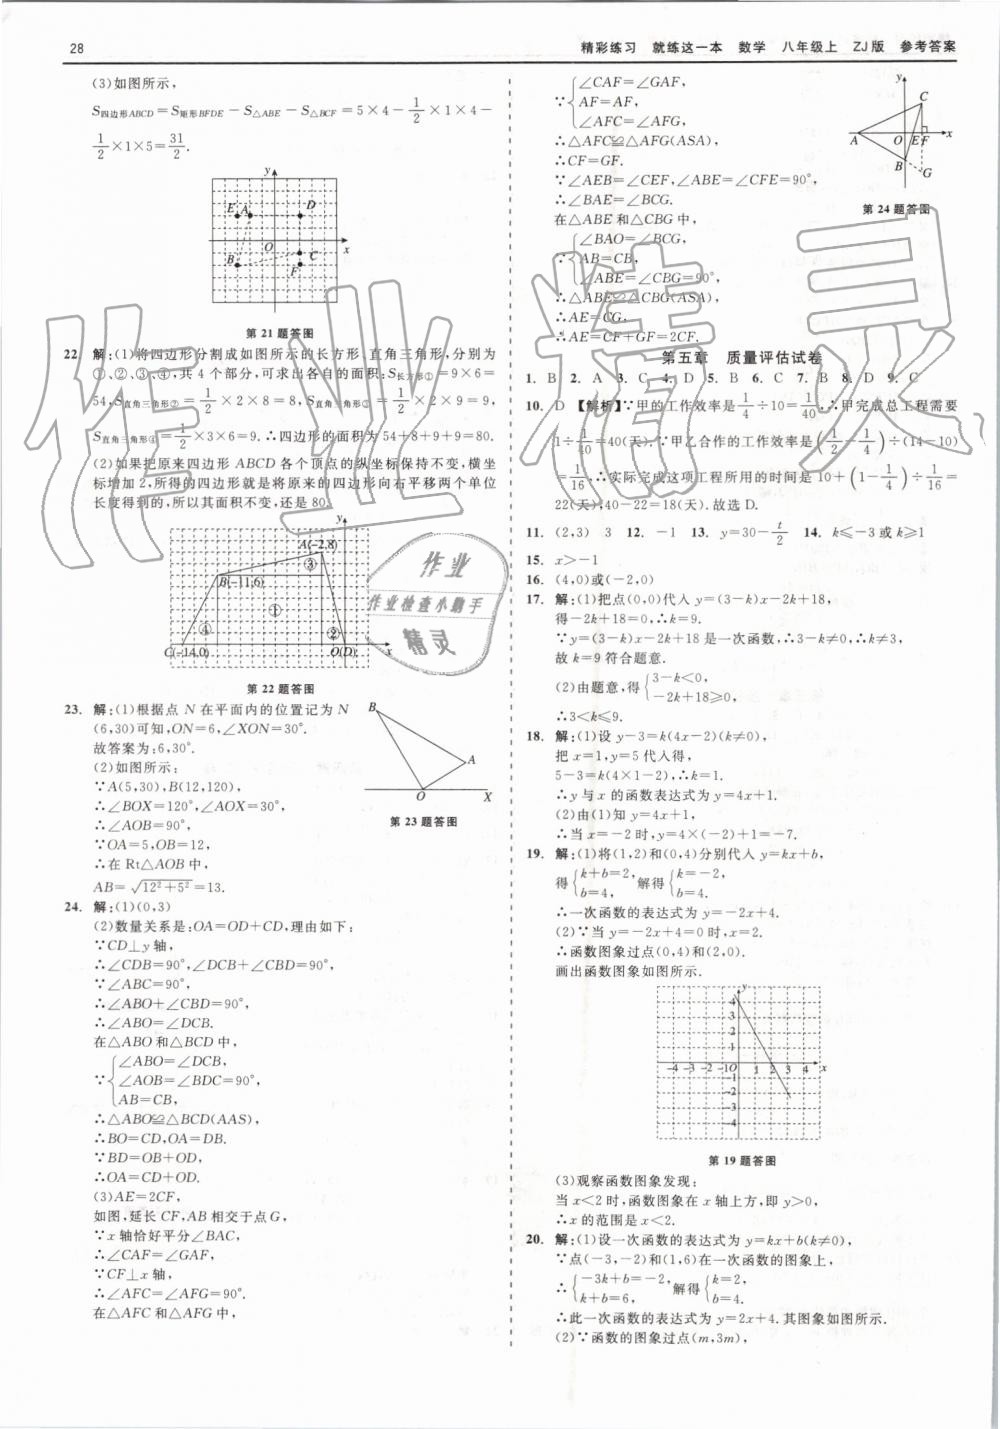 28
精彩练习　就练这一本　数学　八年级上　ZJ版　参考答案
(3)如图所示，
S四边形ABCD=S矩形BFDE-S△ABE-S△BCF=5×4-1/2×1×4-
1/2×1×5=31/2.
y
E A D
O x
B C
F
第21题答图
22. 解:(1)将四边形分割成如图所示的长方形、直角三角形,分别为
①、②、③、④,共4个部分,可求出各自的面积:S长方形①=9×6=
54,S直角三角形②=1/2×2×8=8,S直角三角形③=1/2×2×9=9,
S直角三角形④=1/2×3×6=9.∴四边形的面积为54+8+9+9=80.
(2)如果把原来四边形ABCD各个顶点的纵坐标保持不变,横坐
标增加2,所得的四边形就是将原来的四边形向右平移两个单位
长度得到的,所以其面积不变,还是80.
y
A(-2,8)
③
B(-11,6)
①
④ ②
C(-14,0) O(D) x
第22题答图
23. 解:(1)根据点N在平面内的位置记为N
(6,30)可知,ON=6,∠XON=30°.
故答案为:6,30°.
(2)如图所示:
∵A(5,30),B(12,120),
∴∠BOX=120°,∠AOX=30°,
∴∠AOB=90°,
∵OA=5,OB=12,
∴在Rt△AOB中,
AB=√(12²+5²)=13.
B
A
O X
第23题答图
24. 解:(1)(0,3)
(2)数量关系是:OA=OD+CD,理由如下:
∵CD⊥y轴,
∴∠CDB=90°,∠DCB+∠CBD=90°,
∵∠ABC=90°,
∴∠ABO+∠CBD=90°,
∴∠ABO=∠DCB.
在△ABO和△BCD中,
∠ABO=∠DCB,
∵{∠AOB=∠BDC=90°,
AB=CB,
∴△ABO≌△BCD(AAS),
∴BO=CD,OA=DB.
∵BD=OB+OD,
∴OA=CD+OD.
(3)AE=2CF,
如图,延长CF,AB相交于点G,
∵x轴恰好平分∠BAC,
∴∠CAF=∠GAF,
∵CF⊥x轴,
∴∠AFC=∠AFG=90°.
在△AFC和△AFG中,
∠CAF=∠GAF,
∵{AF=AF,
∠AFC=∠AFG,
∴△AFC≌△AFG(ASA),
∴CF=GF.
∵∠AEB=∠CEF,∠ABE=∠CFE=90°,
∴∠BAE=∠BCG.
在△ABE和△CBG中,
∠BAO=∠BCG,
∵{AB=CB,
∠ABE=∠CBG=90°,
∴△ABE≌△CBG(ASA),
∴AE=CG,
∴AE=CF+GF=2CF.
y
C
A O E F x
B G
第24题答图
第五章　质量评估试卷
1. B 2. A 3. C 4. D 5. B 6. C 7. B 8. D 9. C
10. D 【解析】∵甲的工作效率是1/4÷10=1/40,∴甲完成总工程需要
1÷1/40=40(天).∵甲乙合作的工作效率是(1/2-1/4)÷(14-10)
=1/16,∴实际完成这项工程所用的时间是10+(1-1/4)÷1/16=
22(天),40-22=18(天).故选D.
11. (2,3) 3 12. -1 13. y=30-t/2 14. k≤-3或k≥1
15. x>-1
16. (4,0)或(-2,0)
17. 解:(1)把点(0,0)代入y=(3-k)x-2k+18,
得-2k+18=0,∴k=9.
∵y=(3-k)x-2k+18是一次函数,∴3-k≠0,∴k≠3,
故k=9符合题意.
(2)由题意,得{3-k<0,
-2k+18≥0,
∴3<k≤9.
18. 解:(1)设y-3=k(4x-2)(k≠0),
把x=1,y=5代入得,
5-3=k(4×1-2),∴k=1.
∴y与x的函数表达式为y=4x+1.
(2)由(1)知y=4x+1,
∴当x=-2时,y=4×(-2)+1=-7.
19. 解:(1)将(1,2)和(0,4)分别代入y=kx+b,
得{k+b=2, b=4, 解得{k=-2, b=4.
∴一次函数的表达式为y=-2x+4.
(2)∵当y=-2x+4=0时,x=2.
∴函数图象过点(0,4)和(2,0).
画出函数图象如图所示.
y
4
3
2
1
-4 -3 -2 -1 O 1 2 3 4 x
-1
-2
-3
-4
第19题答图
(3)观察函数图象发现:
当x<2时,函数图象在x轴上方,即y>0,
∴x的范围是x<2.
20. 解:(1)设一次函数的表达式为y=kx+b(k≠0),
∵点(-3,-2)和(1,6)在一次函数的图象上,
∴{-3k+b=-2, k+b=6, 解得{k=2, b=4.
∴此一次函数的表达式为y=2x+4.其图象如图所示.
(2)∵函数的图象过点(m,3m),
作业精灵
作业
作业检查小助手
精灵